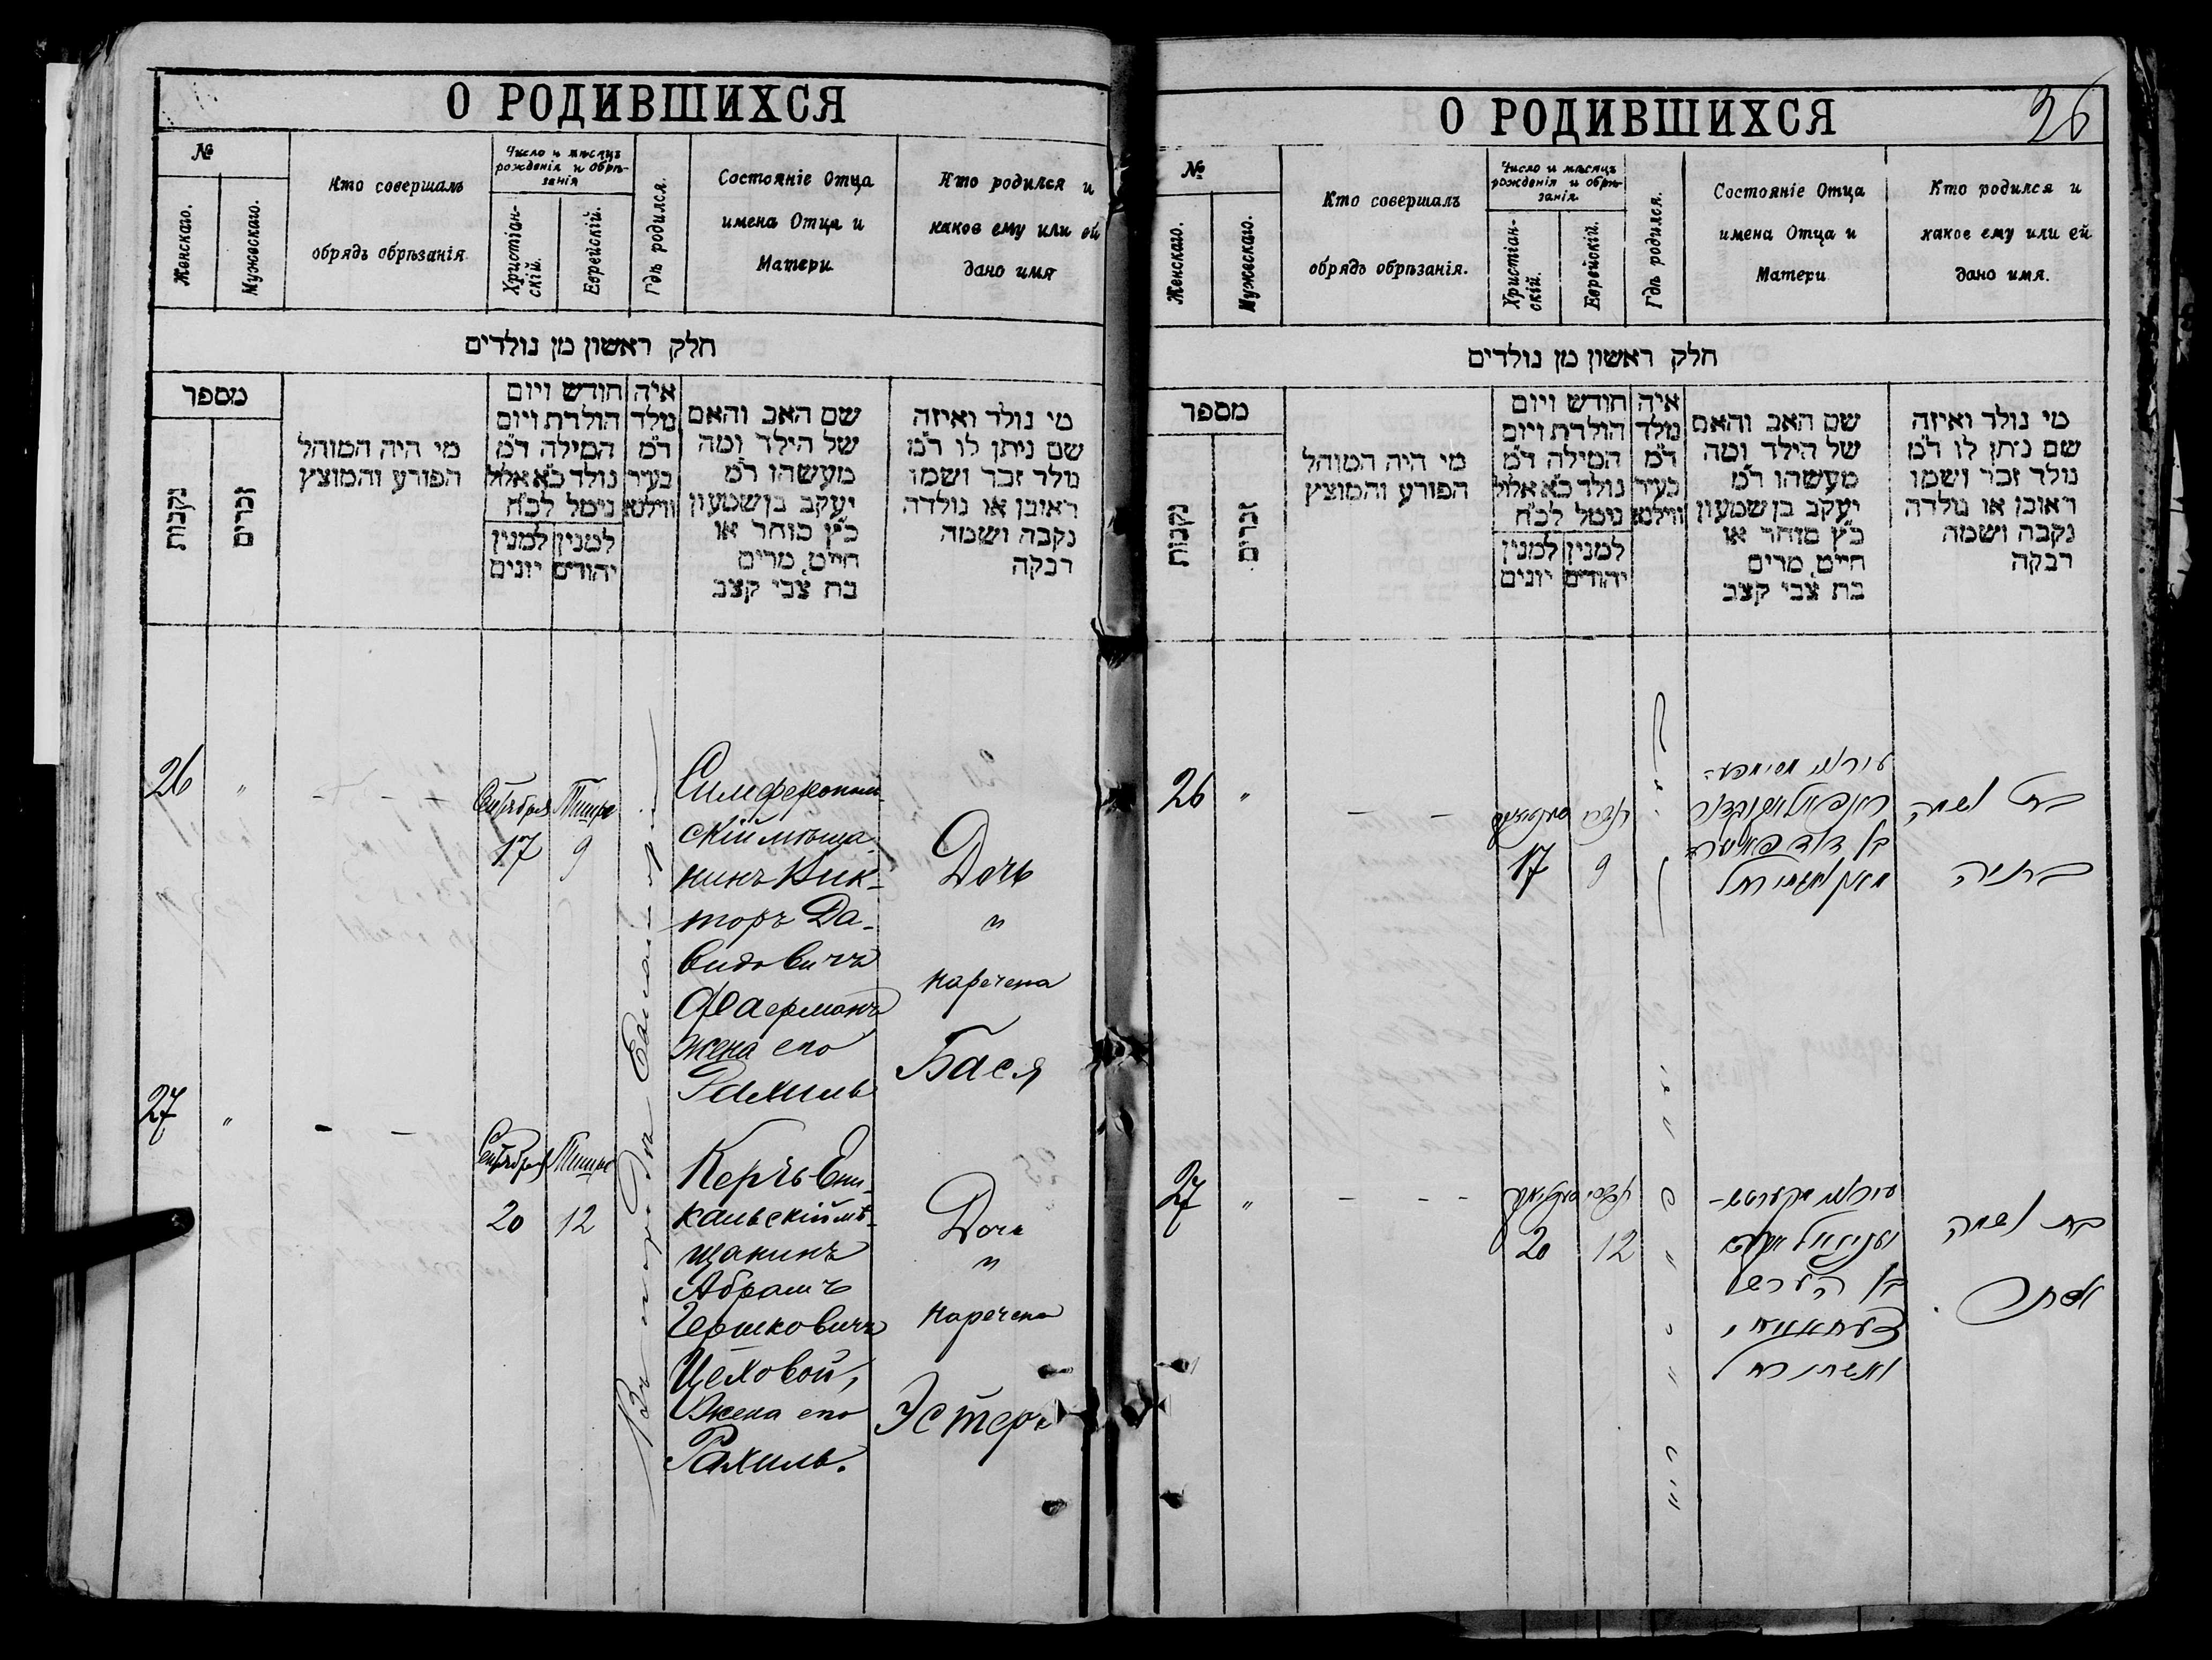 О РОДИВШИХСЯ
№
Женскаго.
Мужескаго.
Кто совершалъ
обрядъ обрѣзанія
Число и мѣсяцъ
рожденія и обрѣ-
занія
Христіан-
скій.
Еврейскій.
Гдѣ родился.
Состояніе Отца
имена Отца и
Матери
Кто родился и
какое ему или ей
дано имя
חלק ראשון מן נולדים
מספר
נקבות
זכרים
מי היה המוהל
הפורע והמוצץ
חודש ויום
הולדת ויום
המילה ד״מ
נולד כ״א אלול
נימל לכ״ח
למנין יהודים
למנין יונים
איה
נולד
ד״מ
בעיר
ווילנא
שם האב והאם
של הילד ומה
מעשהו ד״מ
יעקב בן שמעון
כ״ץ סוחר או
חייט, מרים
בת צבי קצב
מי נולד ואיזה
שם ניתן לו ד״מ
נולד זכר ושמו
ראובן או נולדה
נקבה ושמה
רבקה
26 "
Сентября
17
Тишре
9
Симферополь-
скій мѣща-
нинъ Вик-
торъ Да-
видовичъ
Фаерманъ
жена его
Рахиль
Дочь
"
наречена
Бася
27 "
Сентября
20
Тишре
12
Керчь Ени-
кальскій мѣ-
щанинъ
Абрамъ
Гершковичъ
Цеховой,
Жена его
Рахиль.
Дочь
"
наречена
Эстеръ
Въ городѣ
О РОДИВШИХСЯ
26
№
Женскаго.
Мужескаго.
Кто совершалъ
обрядъ обрѣзанія.
Число и мѣсяцъ
рожденія и обрѣ-
занія.
Христіан-
скій.
Еврейскій.
Гдѣ родился.
Состояніе Отца
имена Отца и
Матери
Кто родился и
какое ему или ей
дано имя.
חלק ראשון מן נולדים
מספר
נקבות
זכרים
מי היה המוהל
הפורע והמוצץ
חודש ויום
הולדת ויום
המילה ד״מ
נולד כ״א אלול
נימל לכ״ח
למנין יהודים
למנין יונים
איה
נולד
ד״מ
בעיר
ווילנא
שם האב והאם
של הילד ומה
מעשהו ד״מ
יעקב בן שמעון
כ״ץ סוחר או
חייט, מרים
בת צבי קצב
מי נולד ואיזה
שם ניתן לו ד״מ
נולד זכר ושמו
ראובן או נולדה
נקבה ושמה
רבקה
26 "
17
תשרי
9
בן דוד
בת ושמה
27 "
20
תשרי
12
בן הערש
ואשתו רחל
בת ושמה
אסתר